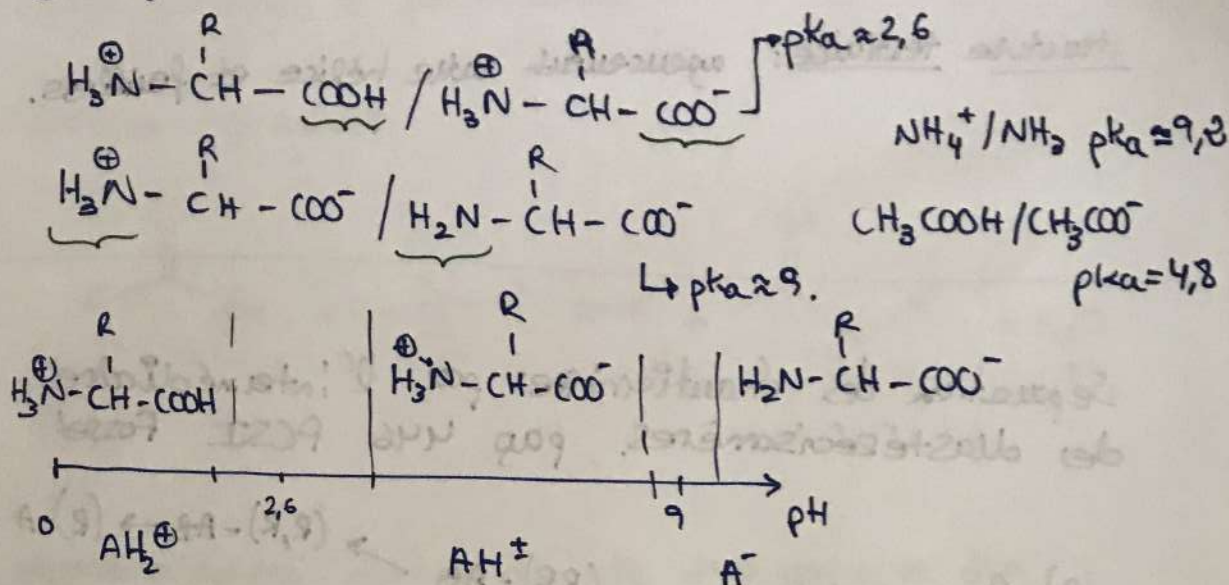 R
H₃N⊕ - CH - COOH / H₃N⊕ - CH - COO⁻ → pka ≈ 2,6
NH₄⁺/NH₃ pka ≈ 9,2
R
H₃N⊕ - CH - COO⁻ / H₂N - CH - COO⁻
CH₃COOH/CH₃COO⁻
↳ pka ≈ 9.
pka = 4,8
R R R
H₃N⊕-CH-COOH H₃N⊕-CH-COO⁻ H₂N-CH-COO⁻
0 2,6 9 pH
AH₂⊕ AH± A⁻